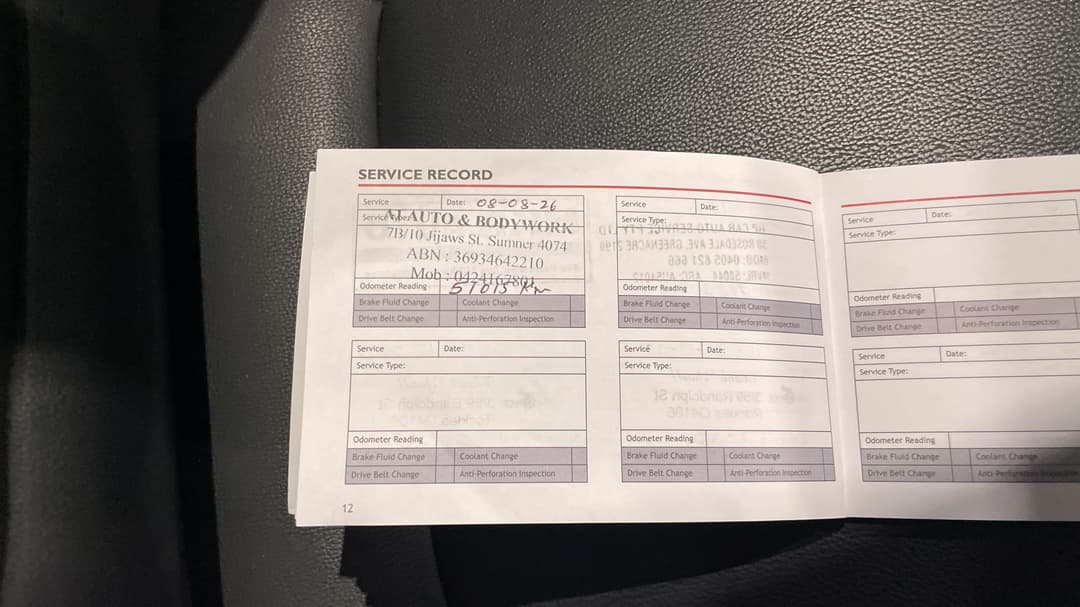 SERVICE RECORD
Service Date: 08-08-26
Service Type: A1 AUTO & BODYWORK
7B/10 Jijaws St. Sumner 4074
ABN : 36934642210
Mob : 0424167801
Odometer Reading 57615 Km
Brake Fluid Change Coolant Change
Drive Belt Change Anti-Perforation Inspection
Service Date:
Service Type:
Odometer Reading
Brake Fluid Change Coolant Change
Drive Belt Change Anti-Perforation Inspection
12
Service Date:
Service Type:
Odometer Reading
Brake Fluid Change Coolant Change
Drive Belt Change Anti-Perforation Inspection
Service Date:
Service Type:
Odometer Reading
Brake Fluid Change Coolant Change
Drive Belt Change Anti-Perforation Inspection
Service Date:
Service Type:
Odometer Reading
Brake Fluid Change Coolant Change
Drive Belt Change Anti-Perforation Inspection
Service Date:
Service Type:
Odometer Reading
Brake Fluid Change Coolant Change
Drive Belt Change Anti-Perforation Inspection